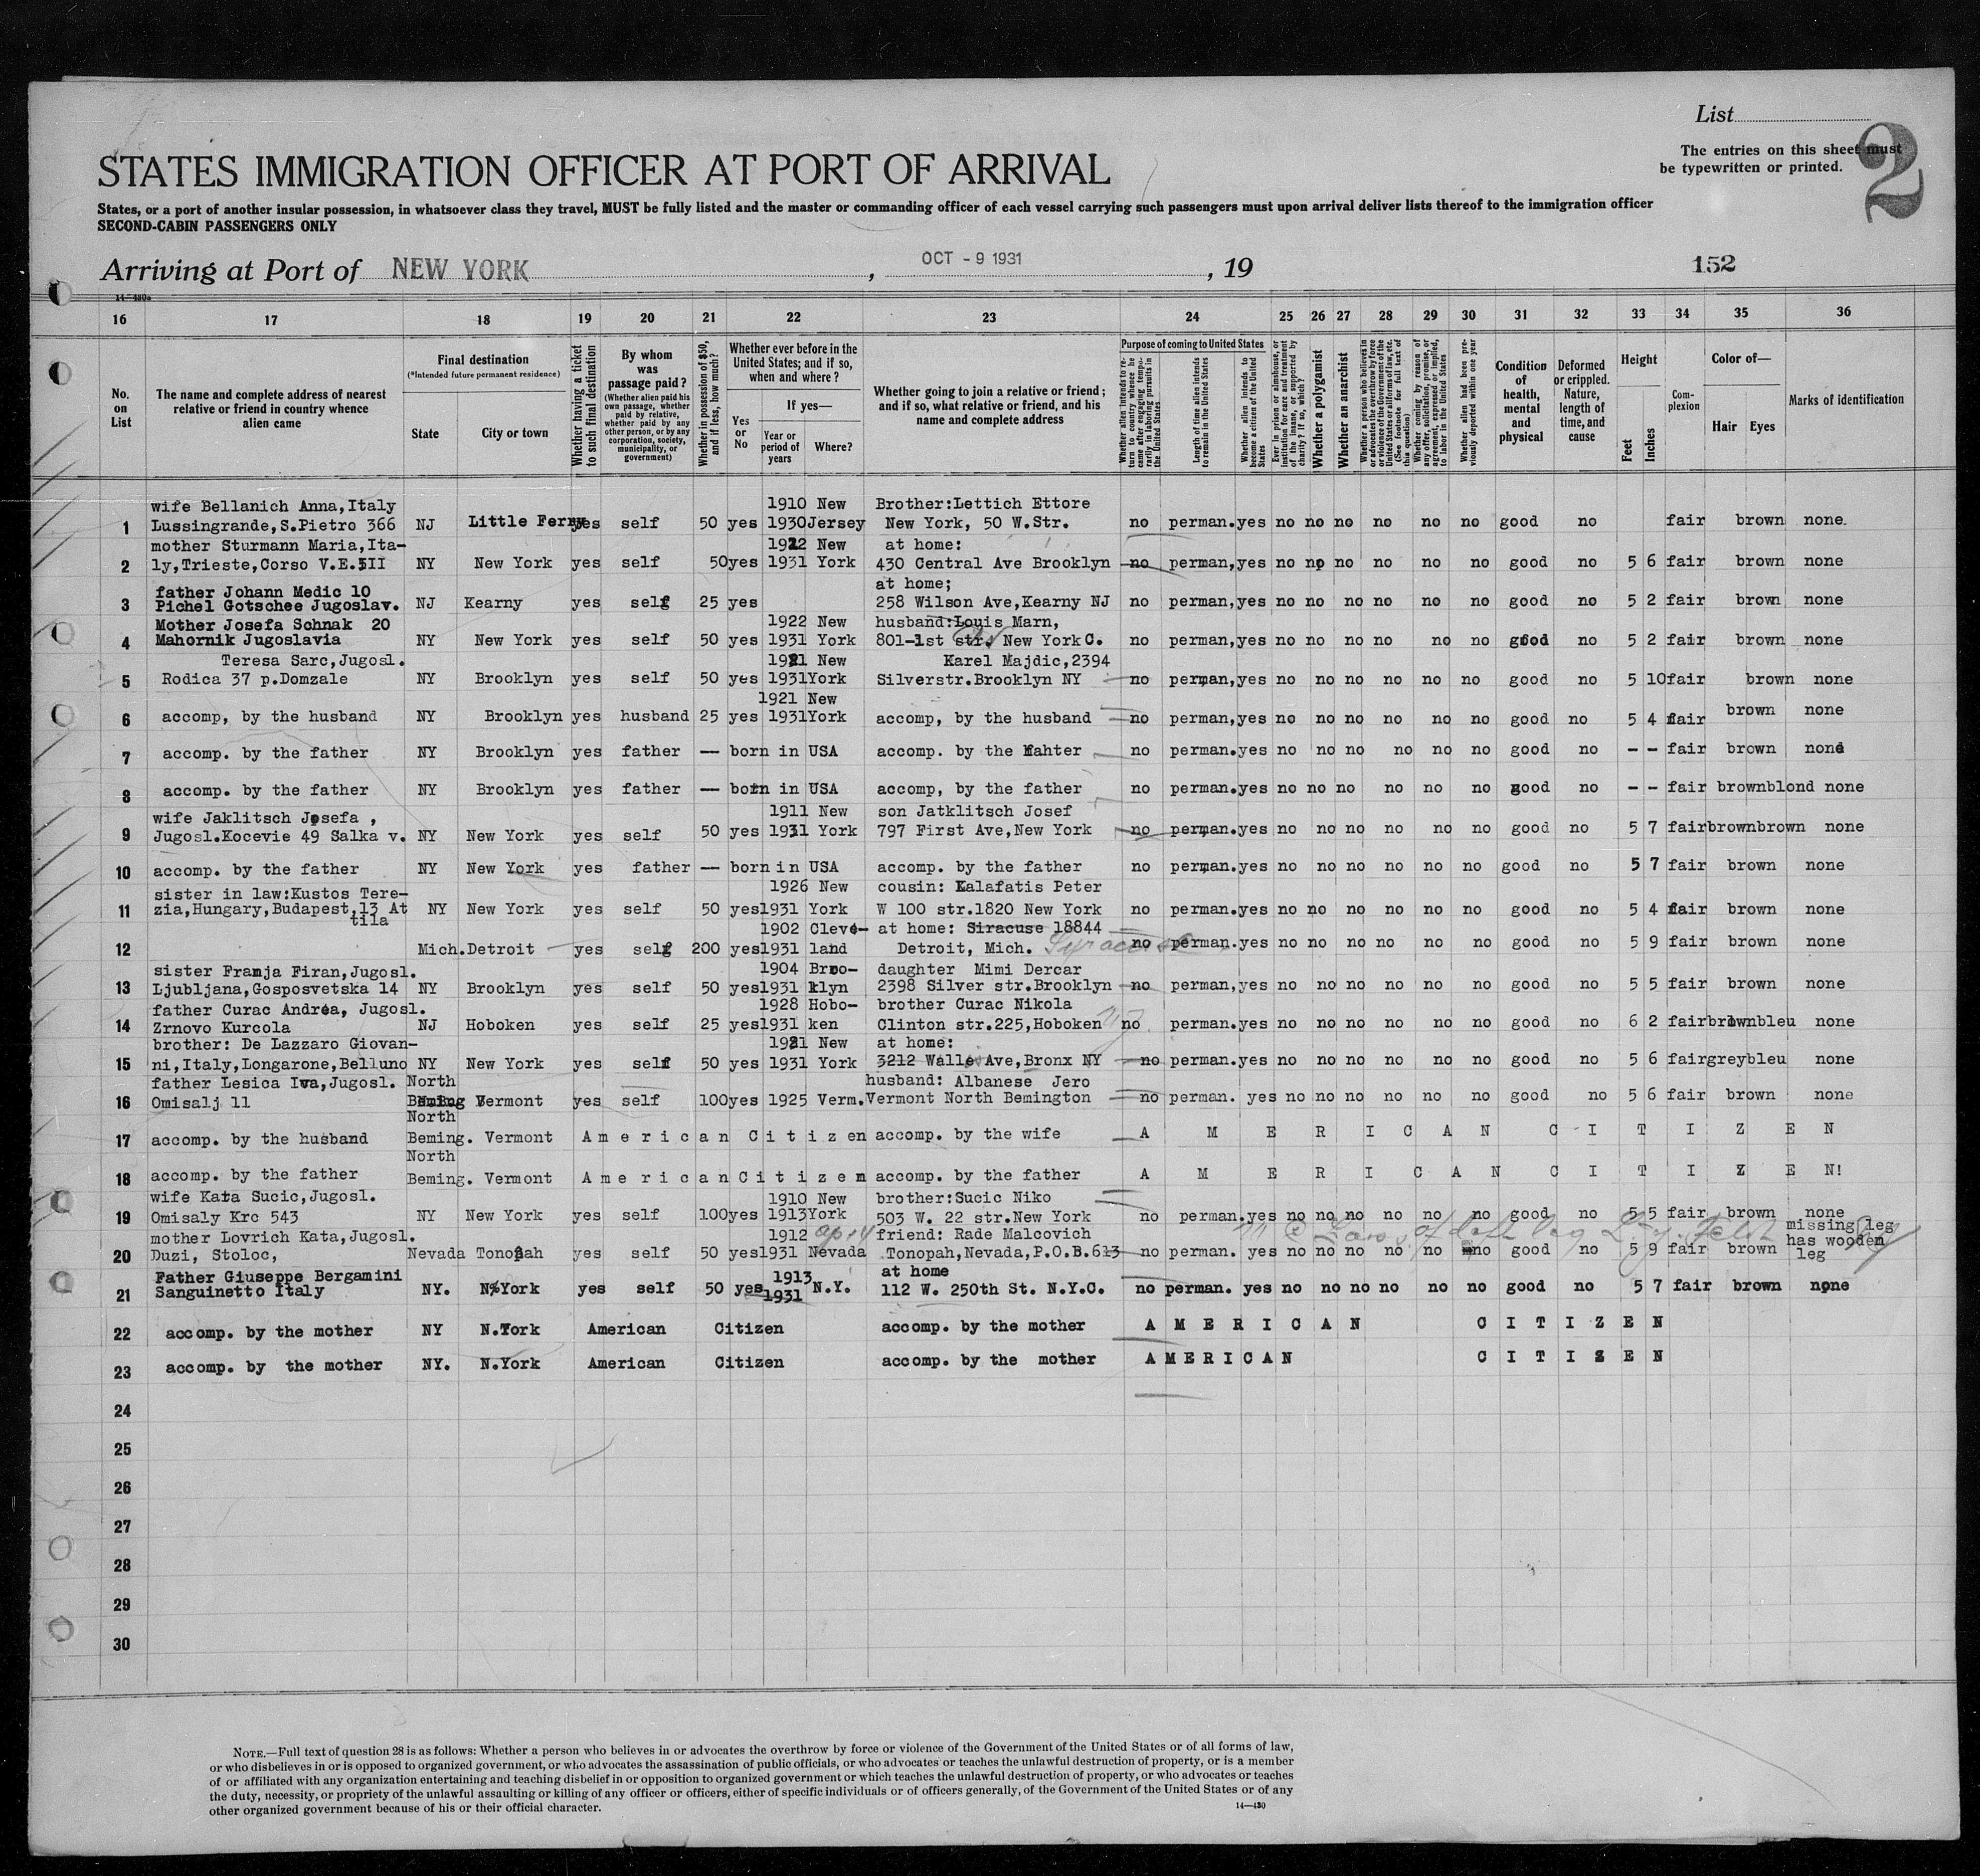 List
The entries on this sheet must
be typewritten or printed.
2
STATES IMMIGRATION OFFICER AT PORT OF ARRIVAL
States, or a port of another insular possession, in whatsoever class they travel, MUST be fully listed and the master or commanding officer of each vessel carrying such passengers must upon arrival deliver lists thereof to the immigration officer
SECOND-CABIN PASSENGERS ONLY
Arriving at Port of NEW YORK , OCT - 9 1931 , 19
152
14—430a
16 17 18 19 20 21 22 23 24 25 26 27 28 29 30 31 32 33 34 35 36
No. on List
The name and complete address of nearest relative or friend in country whence alien came
Final destination (*Intended future permanent residence)
State
City or town
Whether having a ticket to such final destination
By whom was passage paid? (Whether alien paid his own passage, whether paid by relative, whether paid by any other person, or by any corporation, society, municipality, or government)
Whether in possession of $50, and if less, how much?
Whether ever before in the United States; and if so, when and where?
Yes or No
If yes—
Year or period of years
Where?
Whether going to join a relative or friend; and if so, what relative or friend, and his name and complete address
Purpose of coming to United States
Whether alien intends to return to country whence he came after engaging temporarily in laboring pursuits in the United States
Length of time alien intends to remain in the United States
Whether alien intends to become a citizen of the United States
Ever in prison or almshouse, or institution for care and treatment of the insane, or supported by charity? If so, which?
Whether a polygamist
Whether an anarchist
Whether a person who believes in or advocates the overthrow by force or violence of the Government of the United States or all forms of law, etc. (See footnote for full text of this question)
Whether coming by reason of any offer, solicitation, promise, or agreement, expressed or implied, to labor in the United States
Whether alien had been previously deported within one year
Condition of health, mental and physical
Deformed or crippled. Nature, length of time, and cause
Height
Feet
Inches
Complexion
Color of—
Hair Eyes
Marks of identification
wife Bellanich Anna,Italy 1910 New Brother:Lettich Ettore
1 Lussingrande,S.Pietro 366 NJ Little Ferry yes self 50 yes 1930 Jersey New York, 50 W.Str. no perman. yes no no no no no no good no fair brown none.
mother Sturmann Maria,Ita- 1922 New at home:
2 ly,Trieste,Corso V.E.III NY New York yes self 50 yes 1931 York 430 Central Ave Brooklyn no perman, yes no no no no no no good no 5 6 fair brown none
father Johann Medic 10 at home;
3 Pichel Gotschee Jugoslav. NJ Kearny yes self 25 yes 258 Wilson Ave,Kearny NJ no perman, yes no no no no no no good no 5 2 fair brown none
Mother Josefa Schnak 20 1922 New husband:Louis Marn,
4 Mahornik Jugoslavia NY New York yes self 50 yes 1931 York 801-1st str. New York C. no perman, yes no no no no no no good no 5 2 fair brown none
Teresa Sarc,Jugosl. 1921 New Karel Majdic,2394
5 Rodica 37 p.Domzale NY Brooklyn yes self 50 yes 1931 York Silverstr.Brooklyn NY no perman, yes no no no no no no good no 5 10 fair brown none
1921 New
6 accomp, by the husband NY Brooklyn yes husband 25 yes 1931 York accomp, by the husband no perman, yes no no no no no no good no 5 4 fair brown none
7 accomp. by the father NY Brooklyn yes father — born in USA accomp. by the fahter no perman. yes no no no no no no good no - - fair brown none
8 accomp. by the father NY Brooklyn yes father — born in USA accomp, by the father no perman. yes no no no no no no good no - - fair brown blond none
wife Jaklitsch Josefa , 1911 New son Jatklitsch Josef
9 Jugosl.Kocevie 49 Salka v. NY New York yes self 50 yes 1931 York 797 First Ave,New York no perman. yes no no no no no no good no 5 7 fair brown brown none
10 accomp. by the father NY New York yes father — born in USA accomp. by the father no perman. yes no no no no no no good no 5 7 fair brown none
sister in law:Kustos Tere- 1926 New cousin: Kalafatis Peter
11 zia,Hungary,Budapest,13 At NY New York yes self 50 yes 1931 York W 100 str.1820 New York no perman. yes no no no no no no good no 5 4 fair brown none
tila 1902 Cleve- at home: Siracuse 18844
12 Mich. Detroit yes self 200 yes 1931 land Detroit, Mich. Syracuse no perman. yes no no no no no no good no 5 9 fair brown none
sister Franja Firan,Jugosl. 1904 Broo- daughter Mimi Dercar
13 Ljubljana,Gosposvetska 14 NY Brooklyn yes self 50 yes 1931 klyn 2398 Silver str.Brooklyn no perman, yes no no no no no no good no 5 5 fair brown none
father Curac Andrea, Jugosl. 1928 Hobo- brother Curac Nikola
14 Zrnovo Kurcola NJ Hoboken yes self 25 yes 1931 ken Clinton str.225,Hoboken NJ no perman. yes no no no no no no good no 6 2 fair brown bleu none
brother: De Lazzaro Giovan- 1921 New at home:
15 ni,Italy,Longarone,Belluno NY New York yes self 50 yes 1931 York 3212 Walle Ave,Bronx NY no perman. yes no no no no no no good no 5 6 fair grey bleu none
father Lesica Iva,Jugosl. North husband: Albanese Jero
16 Omisalj 11 Beming Vermont yes self 100 yes 1925 Verm. Vermont North Bemington no perman. yes no no no no no no good no 5 6 fair brown none
North
17 accomp. by the husband Beming. Vermont American Citizen accomp. by the wife A M E R I C A N C I T I Z E N
North
18 accomp. by the father Beming. Vermont American Citizen accomp. by the father A M E R I C A N C I T I Z E N!
wife Kata Sucic,Jugosl. 1910 New brother:Sucic Niko
19 Omisaly Krc 543 NY New York yes self 100 yes 1913 York 503 W. 22 str.New York no perman. yes no no no no no no good no 5 5 fair brown none
mother Lovrich Kata,Jugosl. 1912 friend: Rade Malcovich missing leg
20 Duzi, Stoloc, Nevada Tonopah yes self 50 yes 1931 Nevada Tonopah,Nevada,P.O.B.613 no perman. yes no no no no no no good no 5 9 fair brown has wooden leg
Father Giuseppe Bergamini 1913 at home
21 Sanguinetto Italy NY. N.York yes self 50 yes 1931 N.Y. 112 W. 250th St. N.Y.C. no perman. yes no no no no no no good no 5 7 fair brown none
22 accomp. by the mother NY N.York American Citizen accomp. by the mother A M E R I C A N C I T I Z E N
23 accomp. by the mother NY. N.York American Citizen accomp. by the mother A M E R I C A N C I T I Z E N
24
25
26
27
28
29
30
NOTE.—Full text of question 28 is as follows: Whether a person who believes in or advocates the overthrow by force or violence of the Government of the United States or of all forms of law,
or who disbelieves in or is opposed to organized government, or who advocates the assassination of public officials, or who advocates or teaches the unlawful destruction of property, or is a member
of or affiliated with any organization entertaining and teaching disbelief in or opposition to organized government or which teaches the unlawful destruction of property, or who advocates or teaches
the duty, necessity, or propriety of the unlawful assaulting or killing of any officer or officers, either of specific individuals or of officers generally, of the Government of the United States or of any
other organized government because of his or their official character.
14—430